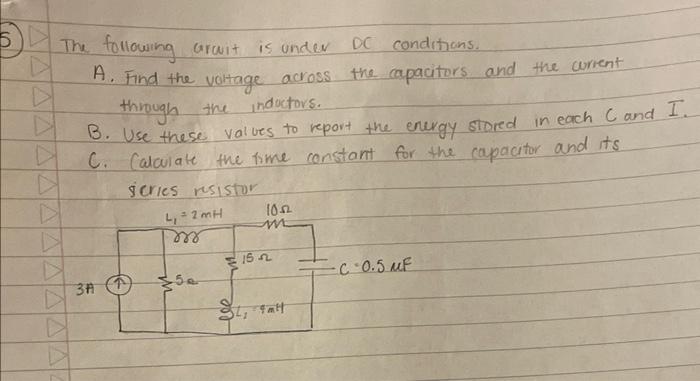 5
The following circuit is under DC conditions.
A. Find the voltage across the capacitors and the current
through the inductors.
B. Use these values to report the energy stored in each C and I.
C. Calculate the time constant for the capacitor and its
series resistor
L₁ = 2mH
10Ω
15Ω
C = 0.5 μF
3A
5Ω